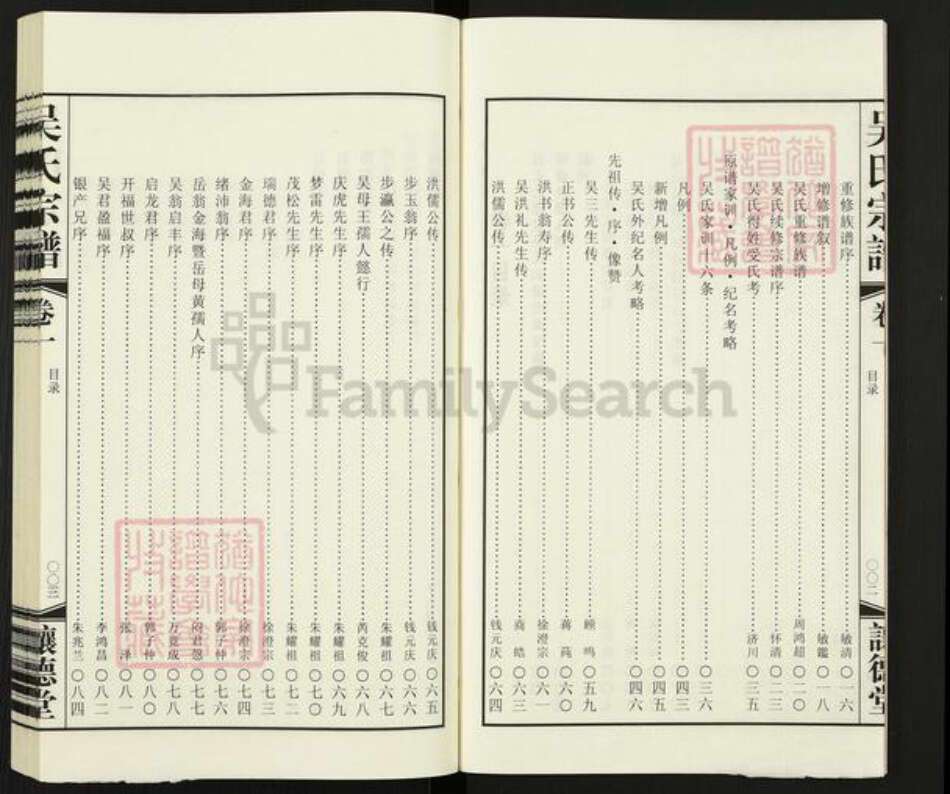 重修族谱序 敏清 〇一六
增修谱叙 敏鑑 〇一八
吴氏重修族谱 周鸿超 〇二〇
吴氏续修宗谱序 怀清 〇二三
吴氏得姓受氏考 济川 〇三五
原谱家训·凡例·纪名考略
吴氏家训十六条 〇三六
凡例 〇四三
新增凡例 〇四五
吴氏外纪名人考略 〇四六
先祖传·序·像赞
吴三先生传 顾鸣 〇五九
正书公传 蒋苑 〇六〇
洪书翁寿序 徐澄宗 〇六一
吴洪礼先生传 龚皓 〇六三
洪儒公传 钱元庆 〇六四
吴氏宗谱
卷一
目录
〇〇二
让德堂
洪儒公传 钱元庆 〇六五
步玉翁序 钱元庆 〇六六
步瀛公之传 朱耀祖 〇六七
吴母王孺人懿行 芮克俊 〇六八
庆虎先生序 朱耀祖 〇六九
梦雷先生序 朱耀祖 〇七〇
茂松先生序 朱耀祖 〇七二
瑞德君序 徐澄宗 〇七三
金海君序 徐澄宗 〇七四
绪沛翁序 郭子仲 〇七六
岳翁金海暨岳母黄孺人序 〇七七
吴翁启丰序 万竞成 〇七八
启龙君序 郭子仲 〇八〇
开福世叔序 张泽 〇八一
吴君盈福序 李鸿昌 〇八二
银产兄序 朱兆兰 〇八四
吴氏宗谱
卷一
目录
〇〇三
让德堂
FamilySearch